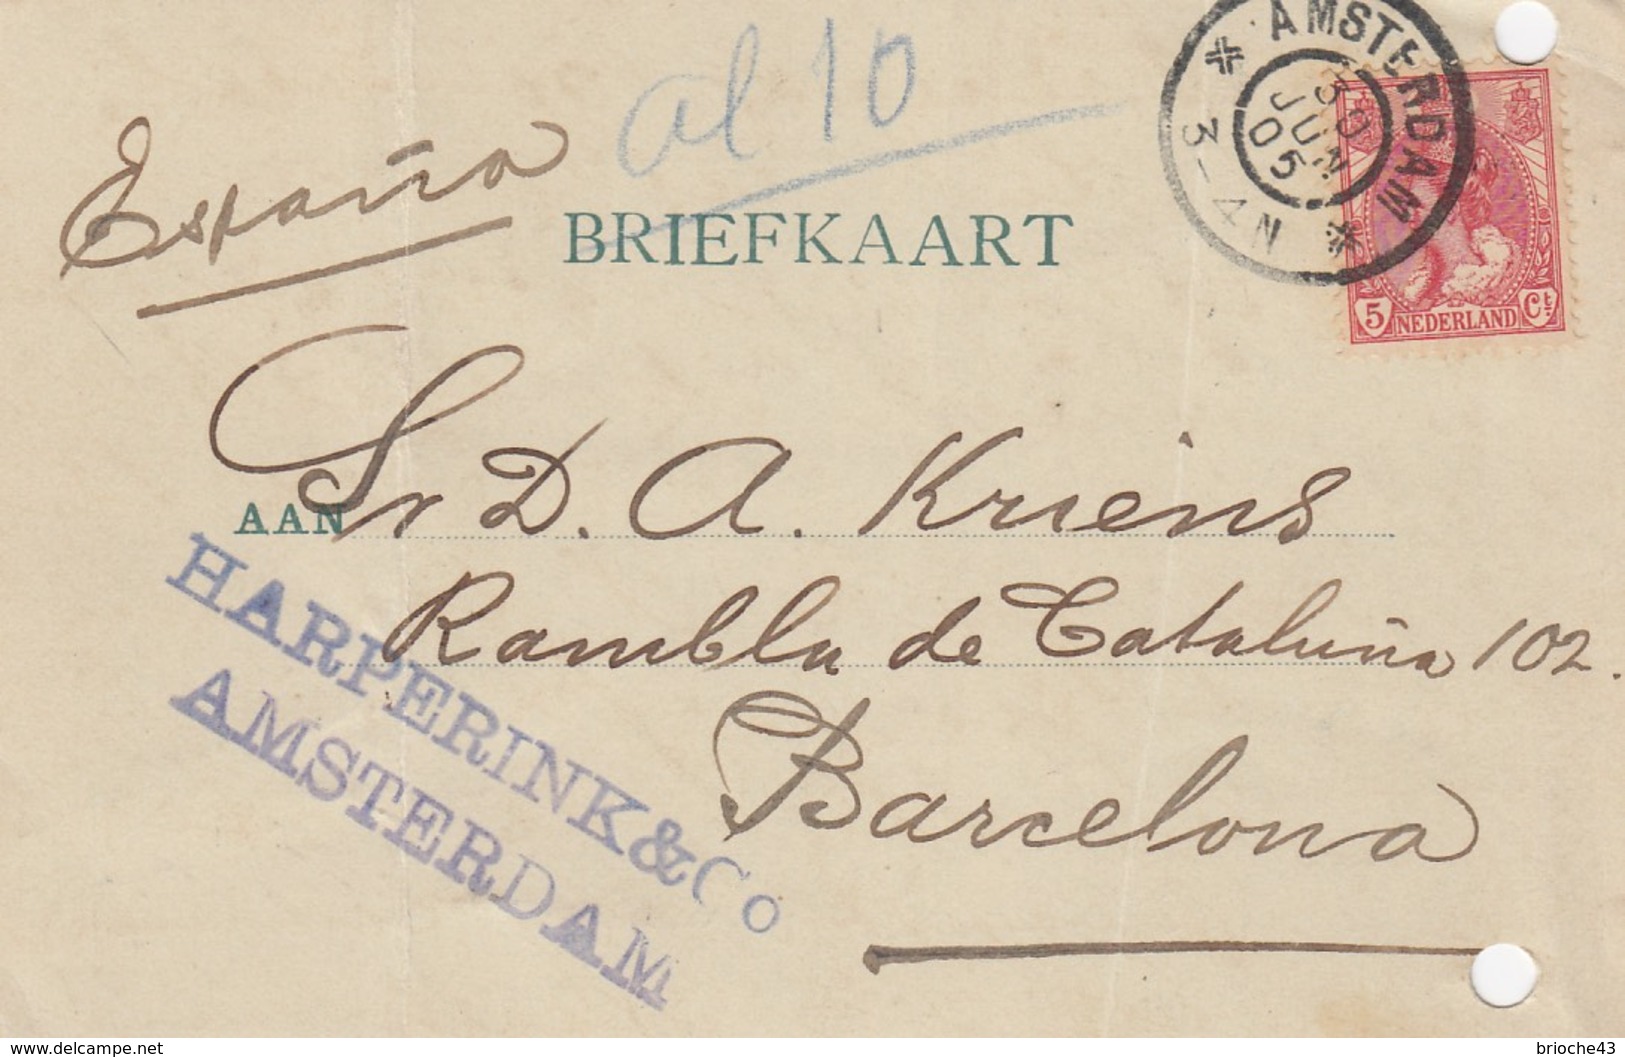 al 10
España
BRIEFKAART
AMSTERDAM
30
JUN
05
3-4N
5 NEDERLAND Ct
Sr D. A. Kriens
AAN
Rambla de Cataluña 102.
Barcelona
HARPERINK & Co
AMSTERDAM
https://www.delcampe.net
brioche43